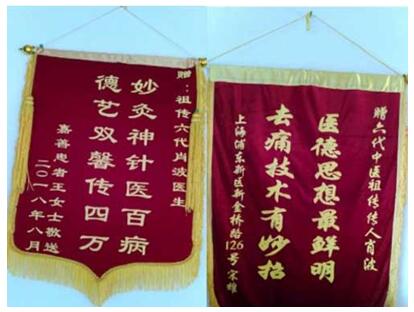 赠：祖传六代肖波医生
妙灸神针医百病
德艺双馨传四方
嘉善患者王女士敬送
二〇一八年八月
赠六代中医祖传传人肖波
医德思想最鲜明
去痛技术有妙招
上海浦东新区新金桥路126号宋雄